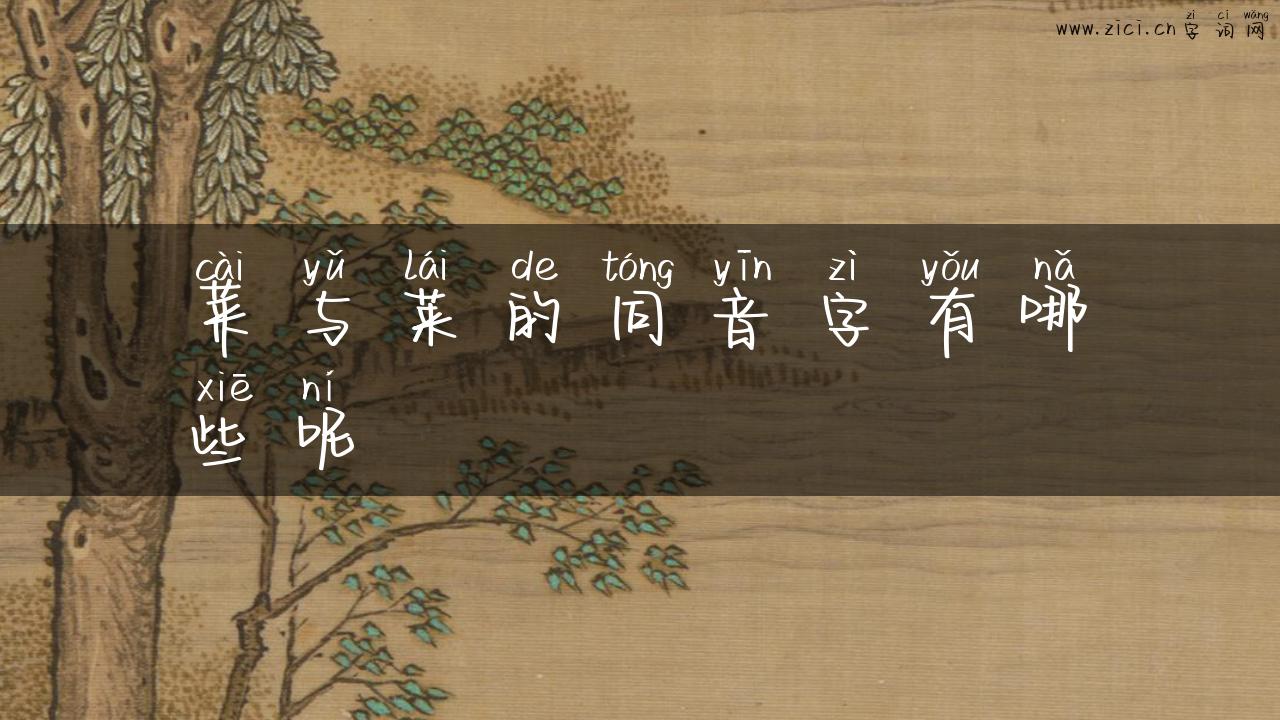 zì cí wǎng
www.zici.cn 字词网
cài yǔ lái de tóng yīn zì yǒu nǎ
菜与莱的同音字有哪
xiē ní
些呢